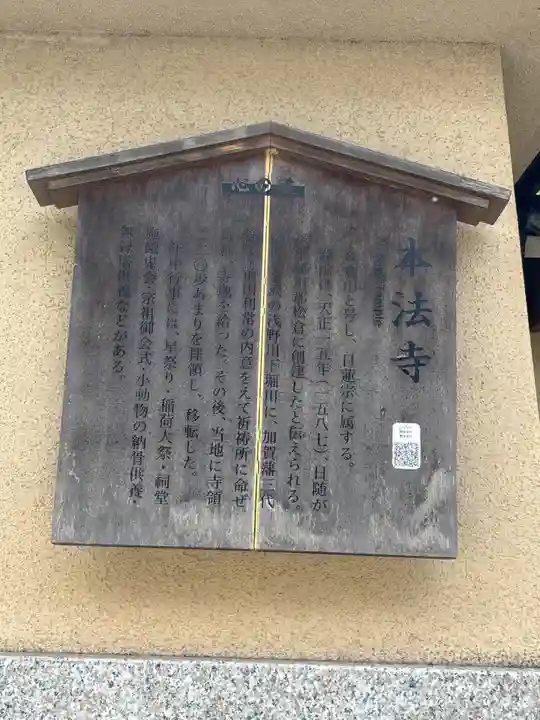 心の道
本法寺
Temple
山と号し、日蓮宗に属する。
天正一五年(一五八七)、日随が
松倉に創建したと伝えられる。
の浅野川下堀川に、加賀藩三代
前田利常の内意をえて祈祷所に命ぜ
を給った。その後、当地に寺領
〇歩あまりを拝領し、移転した。
年中行事には、星祭り・稲荷大祭・祠堂
施餓鬼会・宗祖御会式・小動物の納骨供養・
などがある。